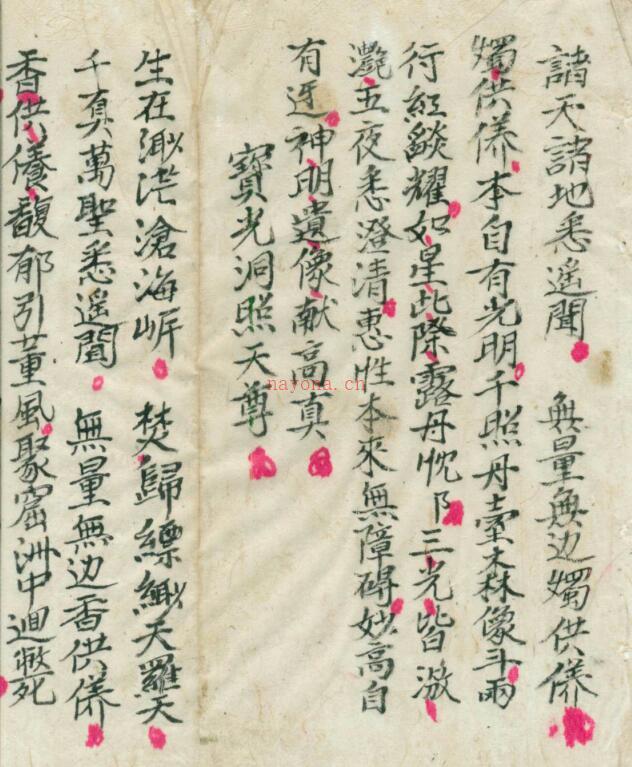 諸天諸地悉遥聞 無量無边燭供俻
燭供俻李自有光明千照丹臺森像斗兩
行紅燄耀如星此際露丹忱卩三光皆激
灔五夜悉澄清惠性本來無障碍妙高自
有迓神明遺像献高真
寶光洞照天尊
生在渺茫滄海岍 焚歸縹緲天羅天
千真萬聖悉遥聞 無量無边香供俻
香供俻馥郁引薫風聚窟洲中迴斃死
nayona.cn